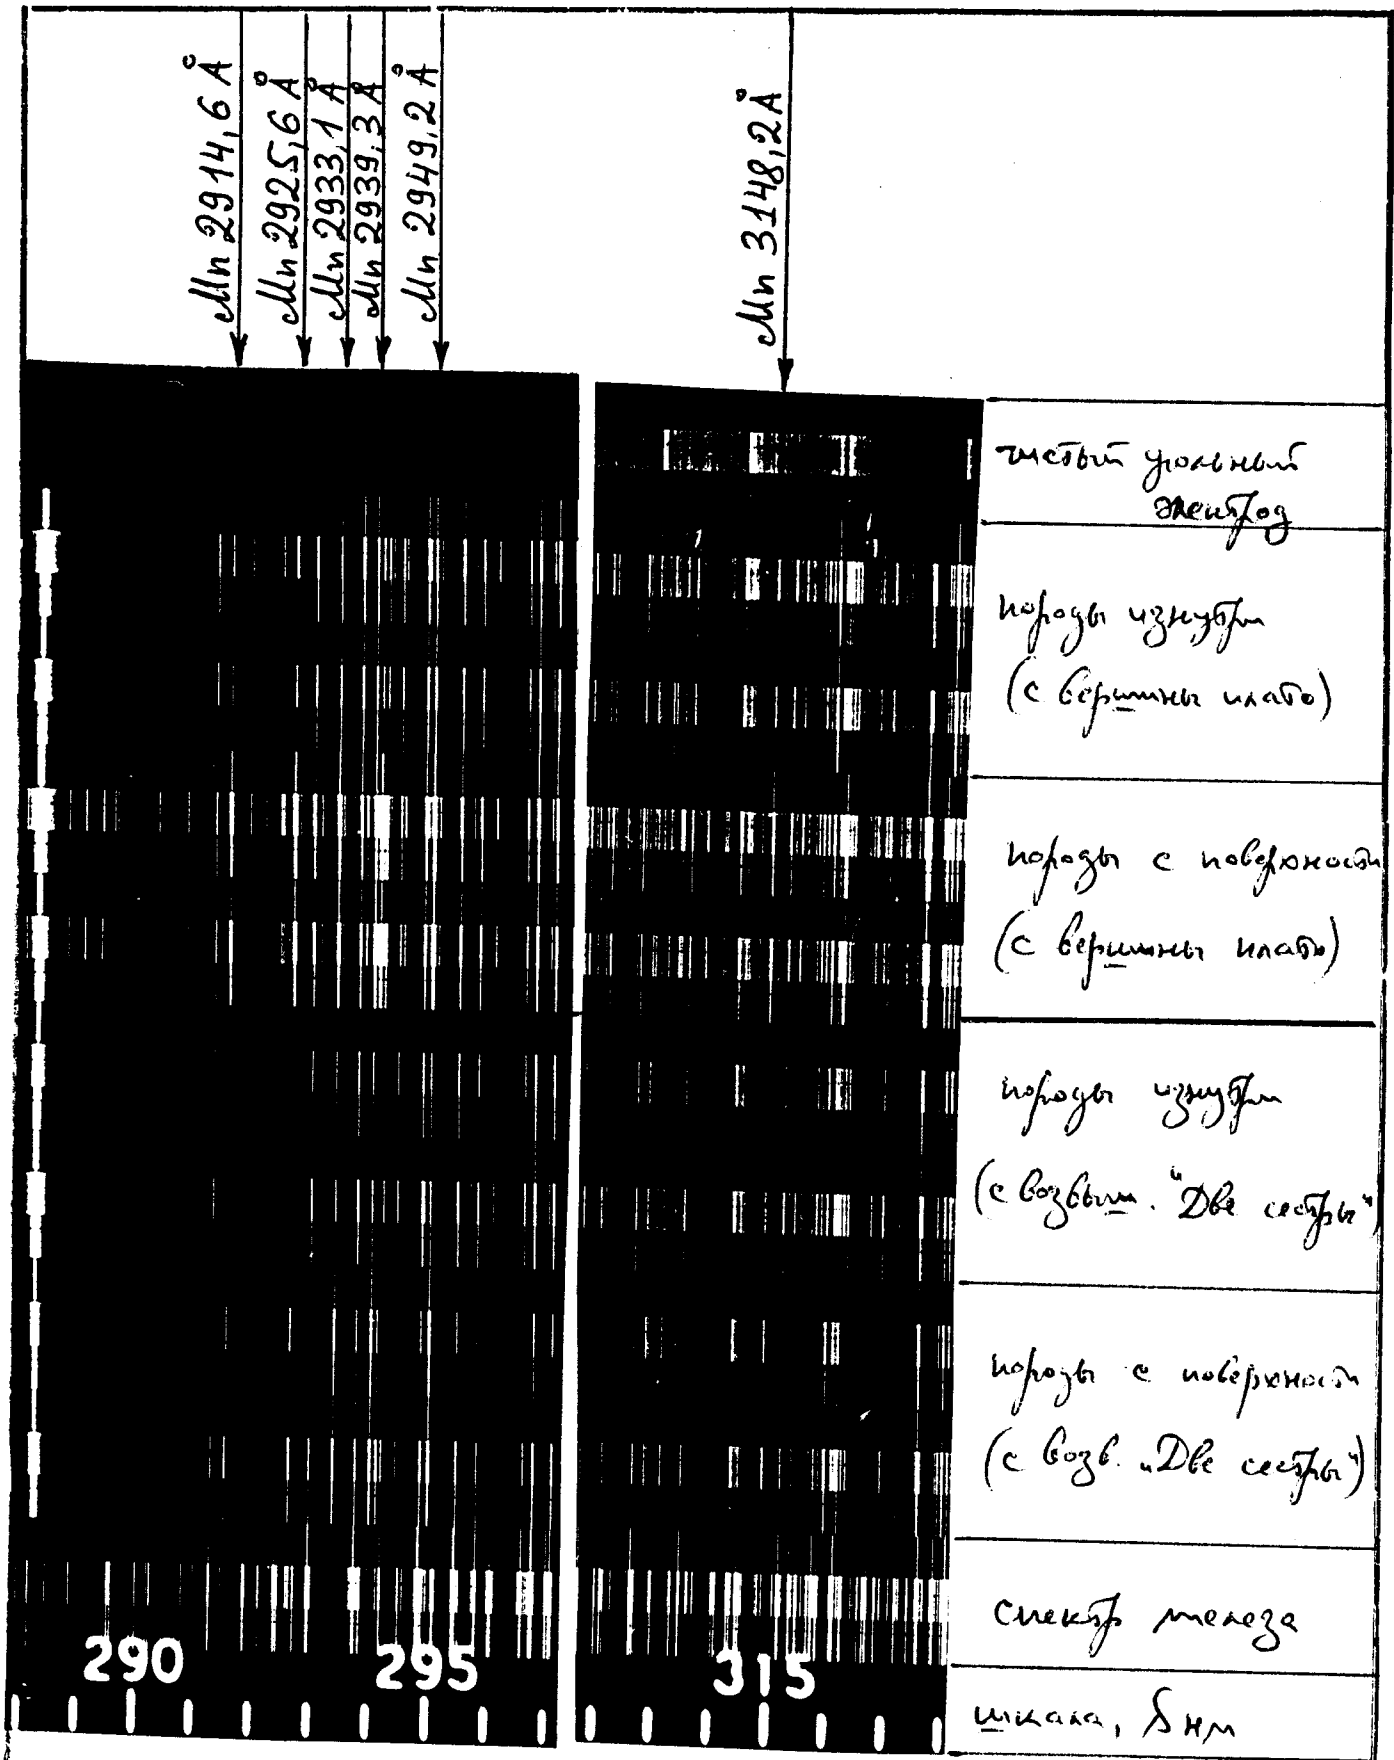 Mn 2914,6 Å
Mn 2925,6 Å
Mn 2933,1 Å
Mn 2939,3 Å
Mn 2949,2 Å
Mn 3148,2 Å
чистый угольный
электрод
породы изнутри
(с вершины плато)
породы с поверхности
(с вершины плато)
породы изнутри
(с возвыш. "Две сестры")
породы с поверхности
(с возв. „Две сестры")
спектр железа
290 295 315
шкала, нм